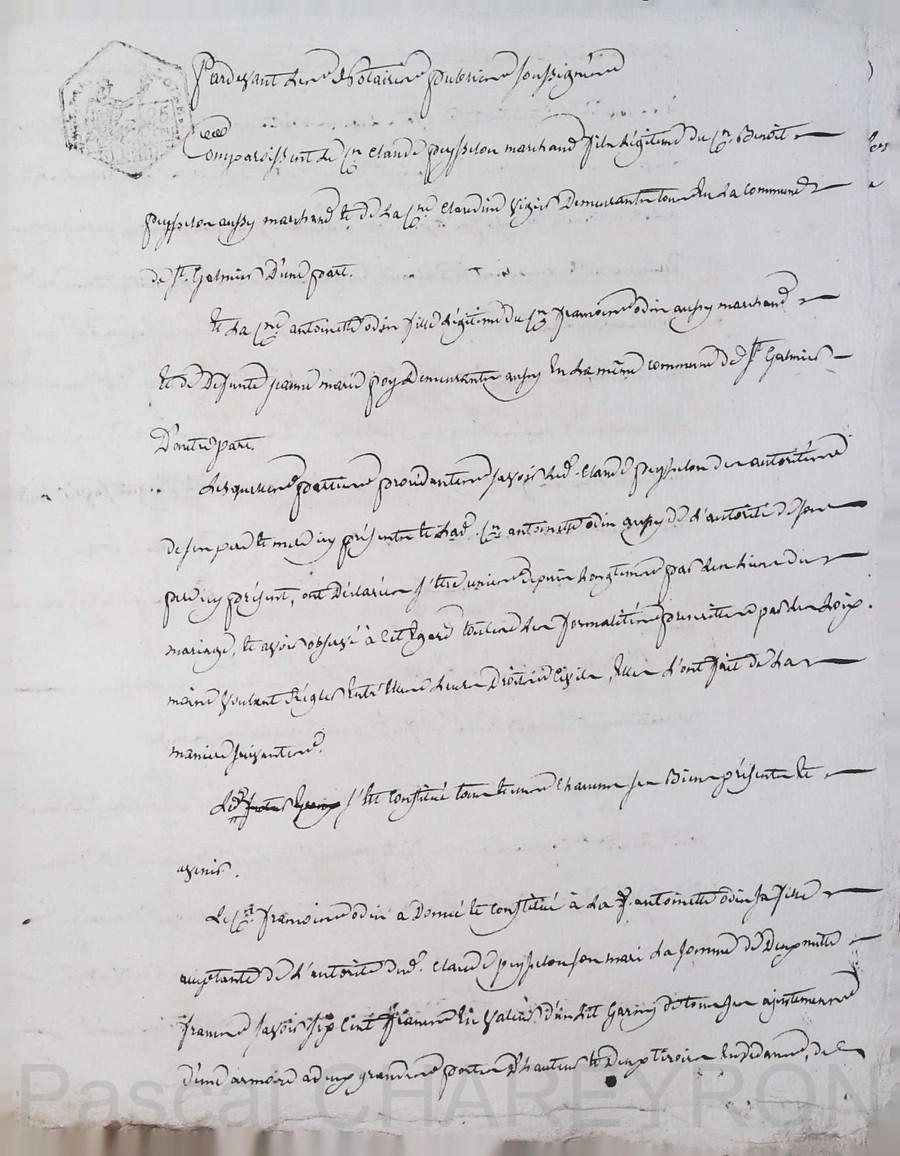 Pardevant Les Notaires publics soussignés
Comparoissent Le Cn Claude peysselon marchand fils Légitime du Cn Benoit
peysselon aussy marchand et de La Cne Claudine Demeurants tous En La commune
de St. Galmier D'une part.
Et La Cne antoinette odin fille Légitime du Cn françois odin aussy marchand
Et de Defunte jeanne marie poy Demeurante aussy En La même commune de St Galmier
D'autre part.
Lesquelles parties procédantes savoir Led. Claude peysselon des autorités
de son père et mère icy présents et Lad. Cne antoinette odin aussy de L'autorité de son
père icy présent, ont Déclaré s'être unies depuis Longtems par Les Liens du
mariage, et avoir observé à cet Egard toutes Les formalités prescrites par Les Loix.
mais voulant Régler Entr'Elles Leurs Droits Civils, Elles L'ont fait de La
manière suivante.
s'est Constitué tous et uns chacuns ses Biens présents et
avenir.
Le Cn françois odin a Donné et Constitué à La antoinette odin sa fille
acceptante de L'autorité dud. Claude peysselon son mari La somme de Deux mille
francs savoir six Cent francs En valeur d'un Lit Garny de tous ses ajustements
d'une armoire a deux grandes portes D'hauteur et Deux tiroirs
Pascal CHAREYRON